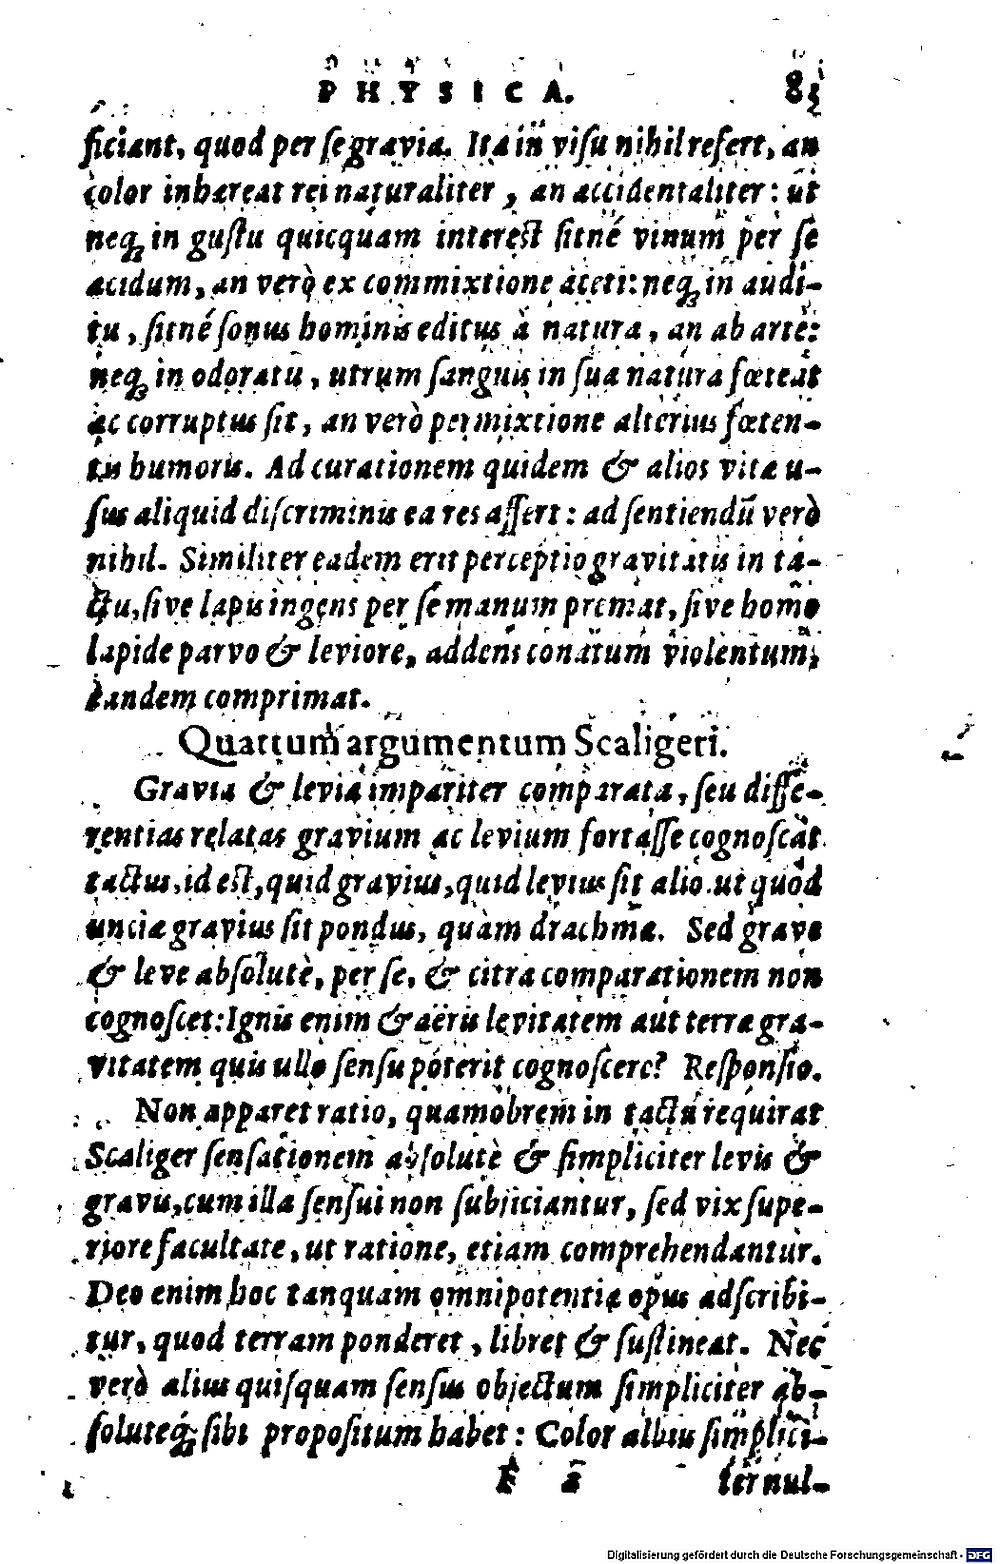 PHYSICA. 8
ficiant, quod per se gravia. Ita in visu nihil refert, an
color inhæreat rei naturaliter, an accidentaliter: ut
neq; in gustu quicquam interest sitné vinum per se
acidum, an verò ex commixtione aceti: neq; in audi-
tu, sitné sonus hominis editus à natura, an ab arte:
neq; in odoratū, utrum sanguis in sua natura fœteat
ac corruptus sit, an verò permixtione alterius fœten-
tis humoris. Ad curationem quidem & alios vitæ u-
sus aliquid discriminis ea res affert: ad sentiendū verò
nihil. Similiter eadem erit perceptio gravitatis in ta-
ctu, sive lapis ingens per se manum premat, sive homo
lapide parvo & leviore, addens conatum violentum,
eandem comprimat.
Quartum argumentum Scaligeri.
Gravia & levia impariter comparata, seu diffe-
rentias relatas gravium ac levium fortasse cognoscat
tactus, id est, quid gravius, quid levius sit alio. ut quòd
unciæ gravius sit pondus, quàm drachmæ. Sed grave
& leve absolutè, per se, & citra comparationem non
cognoscet: Ignis enim & aëris levitatem aut terræ gra-
vitatem quis ullo sensu poterit cognoscere? Responsio.
Non apparet ratio, quamobrem in tactu requirat
Scaliger sensationem absolutè & simpliciter levis &
gravis, cum illa sensui non subjiciantur, sed vix supe-
riore facultate, ut ratione, etiam comprehendantur.
Deo enim hoc tanquam omnipotentiæ opus adscribi-
tur, quod terram ponderet, libret & sustineat. Nec
verò alius quisquam sensus objectum simpliciter ab-
soluteq; sibi propositum habet: Color albus simplici-
ter nul-
Digitalisierung gefördert durch die Deutsche Forschungsgemeinschaft - DFG